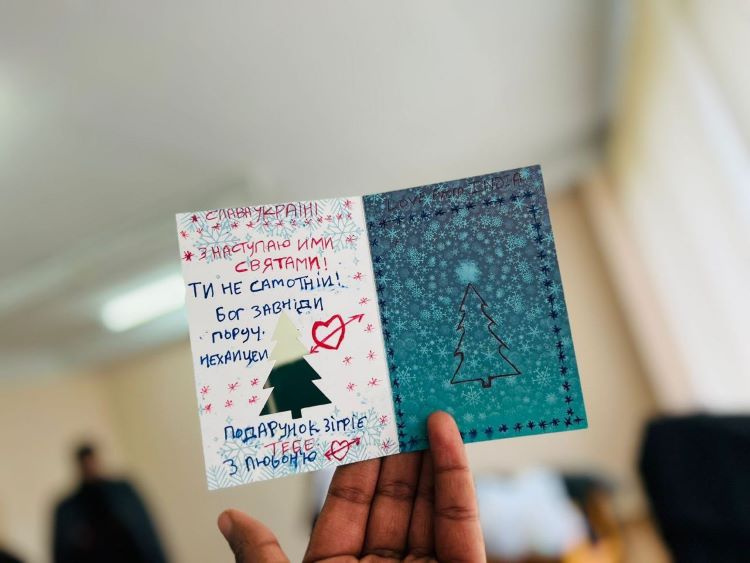 СЛАВА УКРАЇНІ
З НАСТУПАЮ ИМИ
СВЯТАМИ!
ТИ НЕ САМОТНІЙ!
БОГ ЗАВНІДИ
ПОРУЧ.
НЕХАЙЦЕЙ
ПОДАРУНОК ЗІГРІЄ
ТЕБЕ
З ЛЮБОНЮ
LOVE FROM INDIA